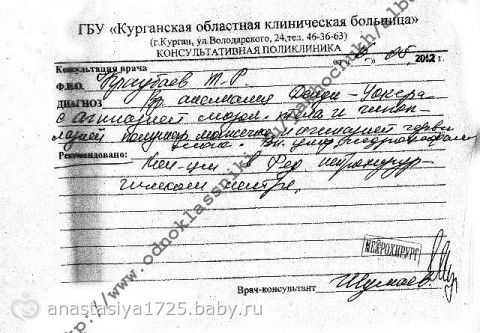 ГБУ «Курганская областная клиническая больница»
(г.Курган, ул.Володарского, 24,тел. 46-36-63)
КОНСУЛЬТАТИВНАЯ ПОЛИКЛИНИКА
Консультация врача 05 2012 г.
Ф.И.О. Т. Р.
ДИАГНОЗ аномалия Денди-Уокера
с агенезией мозол. тела и гипоп-
лазией полушар. мозжечка и агенезией червя
Рекомендовано: Кон-ция в Фед нейрохирур-
гическом центре.
НЕЙРОХИРУРГ
Врач-консультант
http://www.odnoklassniki.ru
anastasiya1725.baby.ru